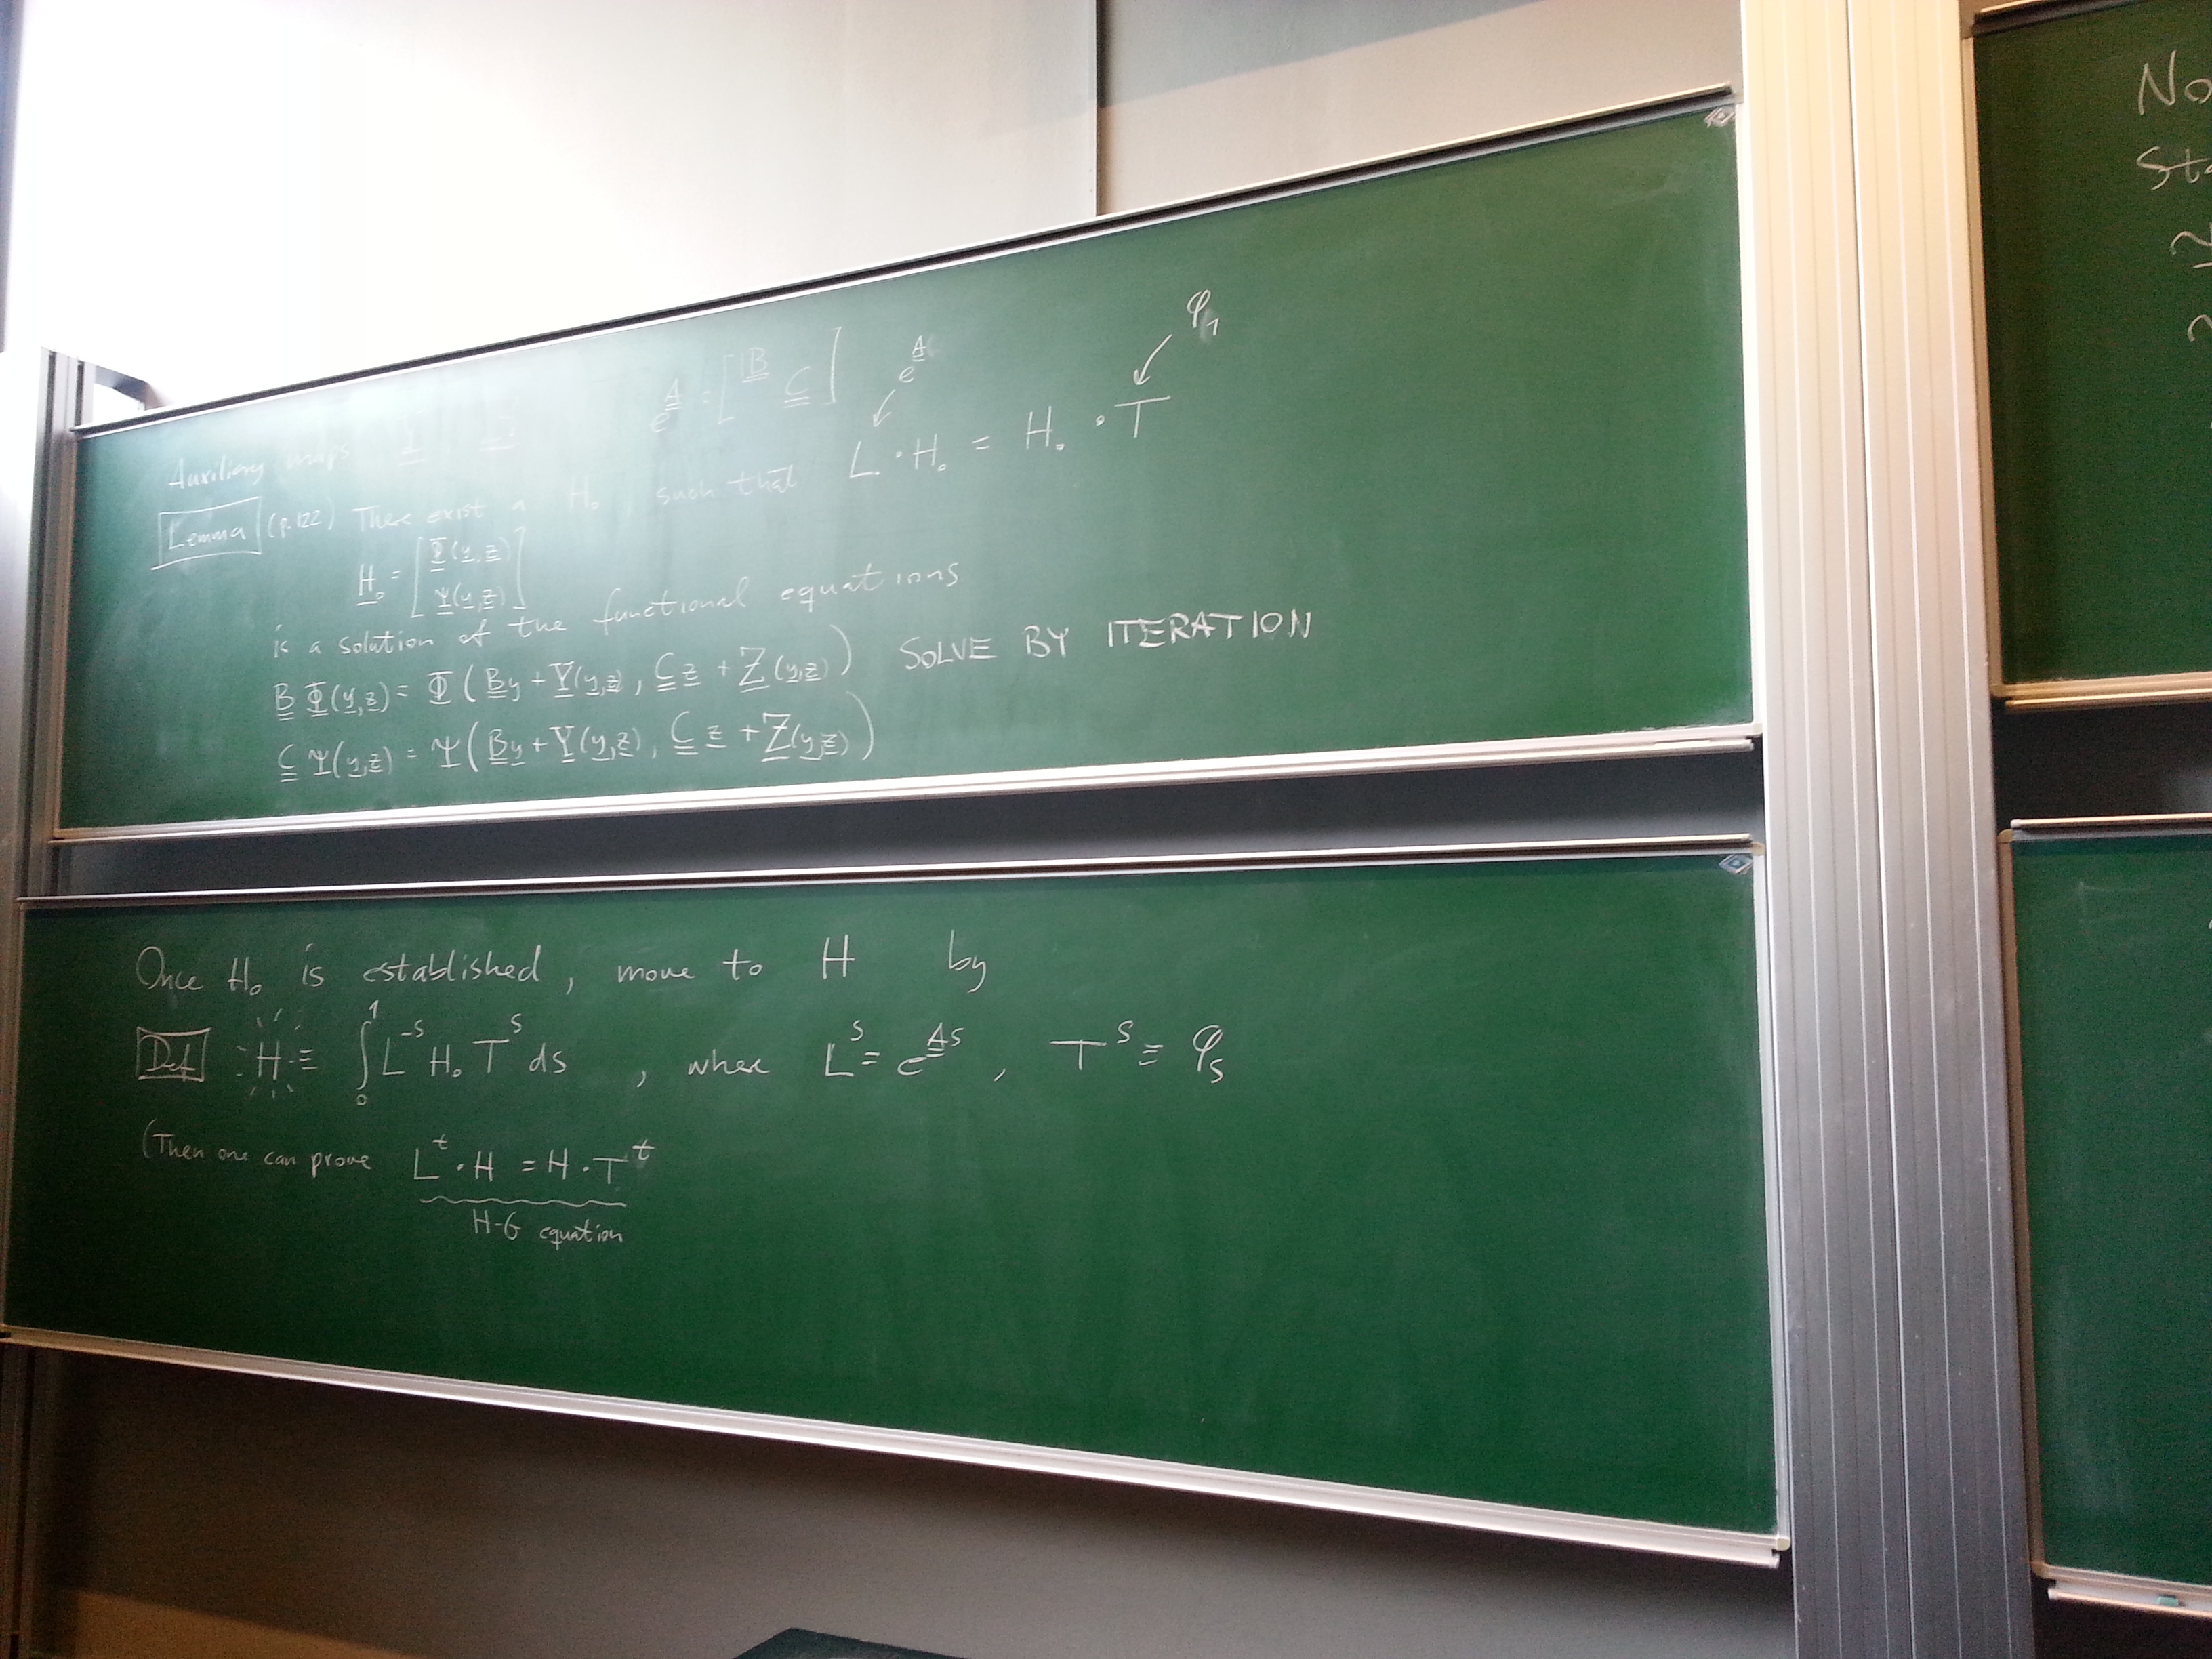 Auxiliary maps
e^A̳ = [ B̳ C̳ ] e^A̳ φ₁
Lemma (p.122) There exist a H₀, such that L · H₀ = H₀ · T
H̲₀ = [ Φ̲(y̲,z̲) Ψ̲(y̲,z̲) ]
is a solution of the functional equations
B̳ Φ̲(y̲,z̲) = Φ̲(B̳y + Y̲(y̲,z̲), C̳z̲ + Z̲(y̲,z̲)) SOLVE BY ITERATION
C̳ Ψ̲(y̲,z̲) = Ψ̲(B̳y̲ + Y̲(y̲,z̲), C̳z̲ + Z̲(y̲,z̲))
Once H₀ is established, move to H by
Def H ≡ ∫₀¹ L^-s H₀ T^s ds, where L^s = e^A̳s, T^s ≡ φ_s
(Then one can prove L^t · H = H · T^t
H-G equation
No